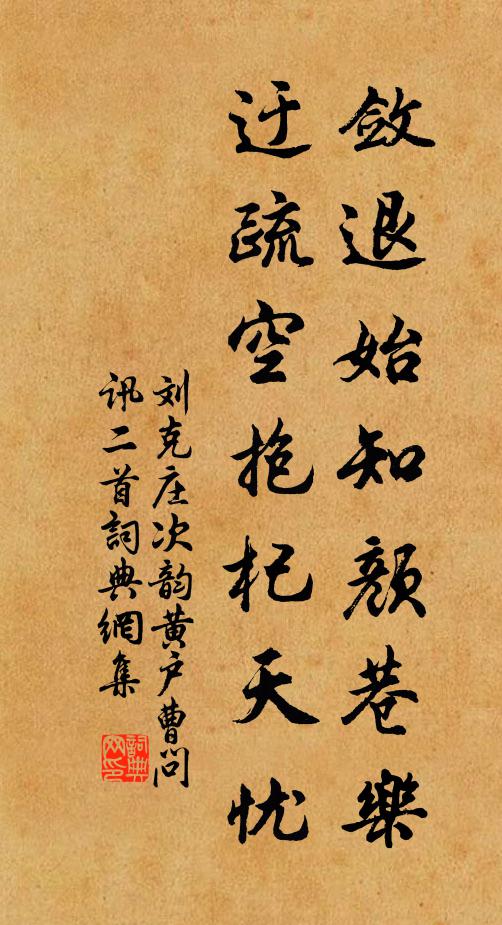 敛退始知颜巷樂
迂疏空抱杞天忧
刘克庄次韵黄户曹问
讯二首詞典網集
詞典
网印